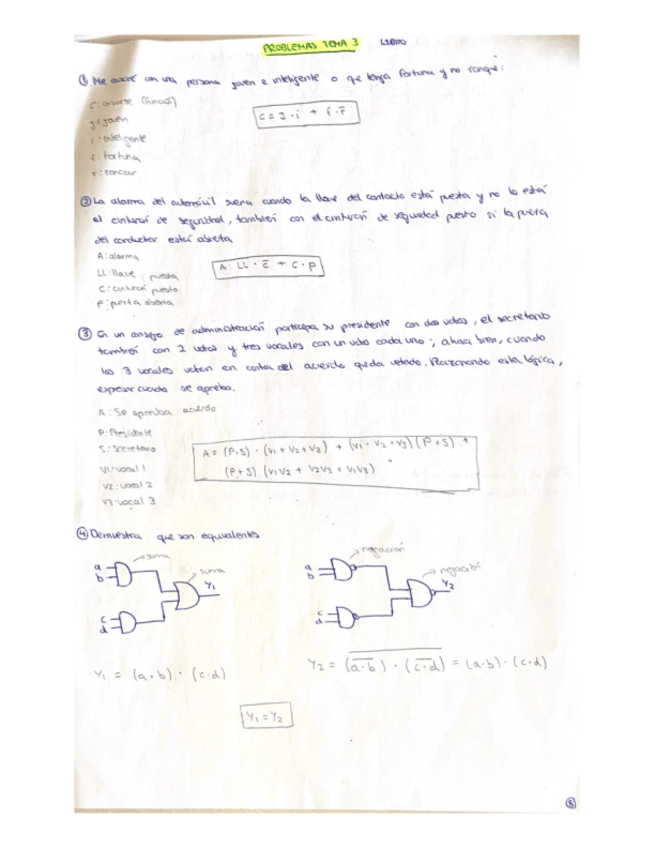 PROBLEMAS TEMA 3 LIBRO
① Me casaré con una persona joven e inteligente o que tenga fortuna y no ronque:
C: casarse (función)
j: joven
i: inteligente
f: fortuna
r: roncar
C = J · i + f · r̅
② La alarma del automóvil suena cuando la llave del contacto está puesta y no lo está
el cinturón de seguridad, también con el cinturón de seguridad puesto si la puerta
del conductor está abierta
A: alarma
LL: llave puesta
C: cinturón puesto
P: puerta abierta
A: LL · c̅ + C · P
③ En un consejo de administración participa su presidente con dos votos, el secretario
también con 2 votos y tres vocales con un voto cada uno; ahora bien, cuando
los 3 vocales votan en contra del acuerdo queda vetado. Razonando esta lógica,
expresar cuando se aprueba.
A: Se aprueba acuerdo
P: Presidente
S: Secretario
V1: vocal 1
V2: vocal 2
V3: vocal 3
A = (P·S) · (V1 + V2 + V3) + (V1 · V2 · V3) (P + S) +
(P+S) (V1V2 + V2V3 + V1V3)
④ Demuestra que son equivalentes
suma negación
a a
b b
suma negación
Y1 Y2
c c
d d
Y1 = (a·b) · (c·d)
Y2 = \overline{(\overline{a·b}) · (\overline{c·d})} = (a·b) · (c·d)
Y1 = Y2